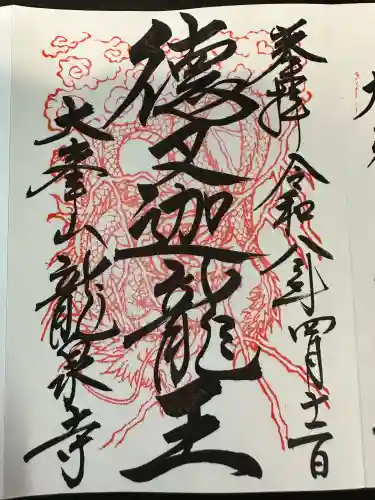 奉拝 令和八年四月十二日
徳叉迦龍王
大峯山龍泉寺